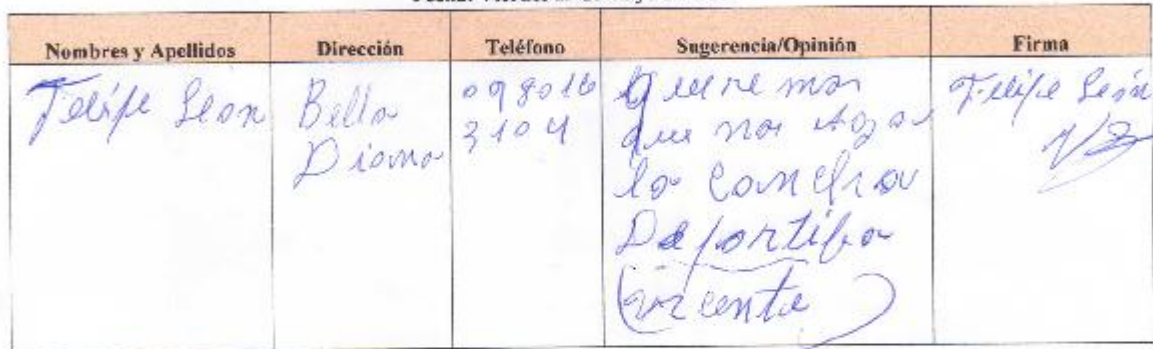 Nombres y Apellidos
Dirección
Teléfono
Sugerencia/Opinión
Firma
Felipe León
Bella
Diana
098016
3104
queremos
que nos aga
la cancha
Deportiba
urcente
Felipe León